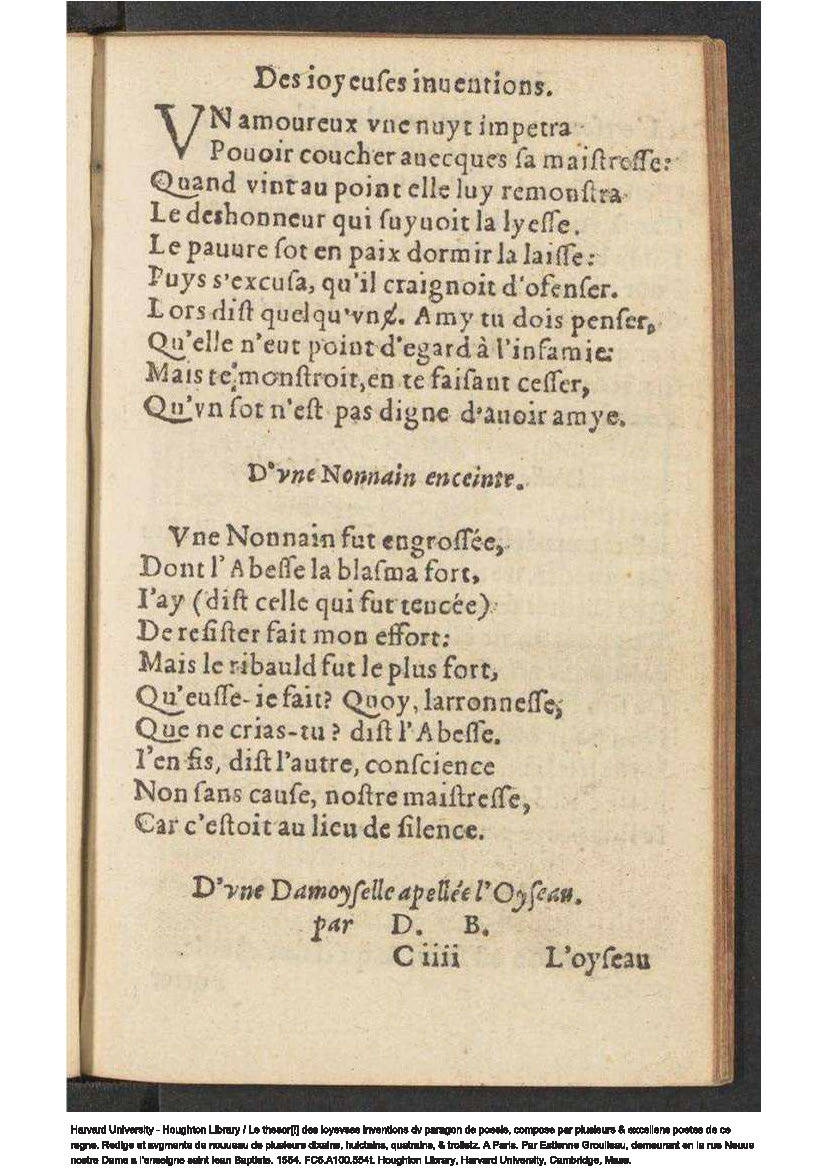 Des ioyeuſes inuentions.
VN amoureux vne nuyt impetra
Pouoir coucher auecques ſa maiſtreſſe:
Quand vint au point elle luy remonſtra
Le deshonneur qui ſuyuoit la lyeſſe.
Le pauure ſot en paix dormir la laiſſe:
Puys s'excuſa, qu'il craignoit d'ofenſer.
Lors diſt quelqu'vn. Amy tu dois penſer,
Qu'elle n'eut point d'egard à l'infamie:
Mais te monſtroit, en te faiſant ceſſer,
Qu'vn ſot n'eſt pas digne d'auoir amye.
D'vne Nonnain enceinte.
Vne Nonnain fut engroſſée,
Dont l'Abeſſe la blaſma fort,
I'ay (diſt celle qui fut tencée)
De reſiſter fait mon effort:
Mais le ribauld fut le plus fort,
Qu'euſſe-ie fait? Quoy, larronneſſe,
Que ne crias-tu? diſt l'Abeſſe.
I'en fis, diſt l'autre, conſcience
Non ſans cauſe, noſtre maiſtreſſe,
Car c'eſtoit au lieu de ſilence.
D'vne Damoyſelle apellée l'Oyſeau.
par D. B.
C iiii L'oyſeau
Harvard University - Houghton Library / Le thesor[!] des ioyevses inventions dv paragon de poesie, compose par plusieurs & excellens poetes de ce
regne. Redige et avgmente de nouueau de plusieurs dixains, huictains, quatrains, & trolietz. A Paris. Par Estienne Groulleau, demeurant en la rue Neuue
nostre Dame a l'enseigne saint Iean Baptiste. 1554. FC5.A100.554t. Houghton Library, Harvard University, Cambridge, Mass.